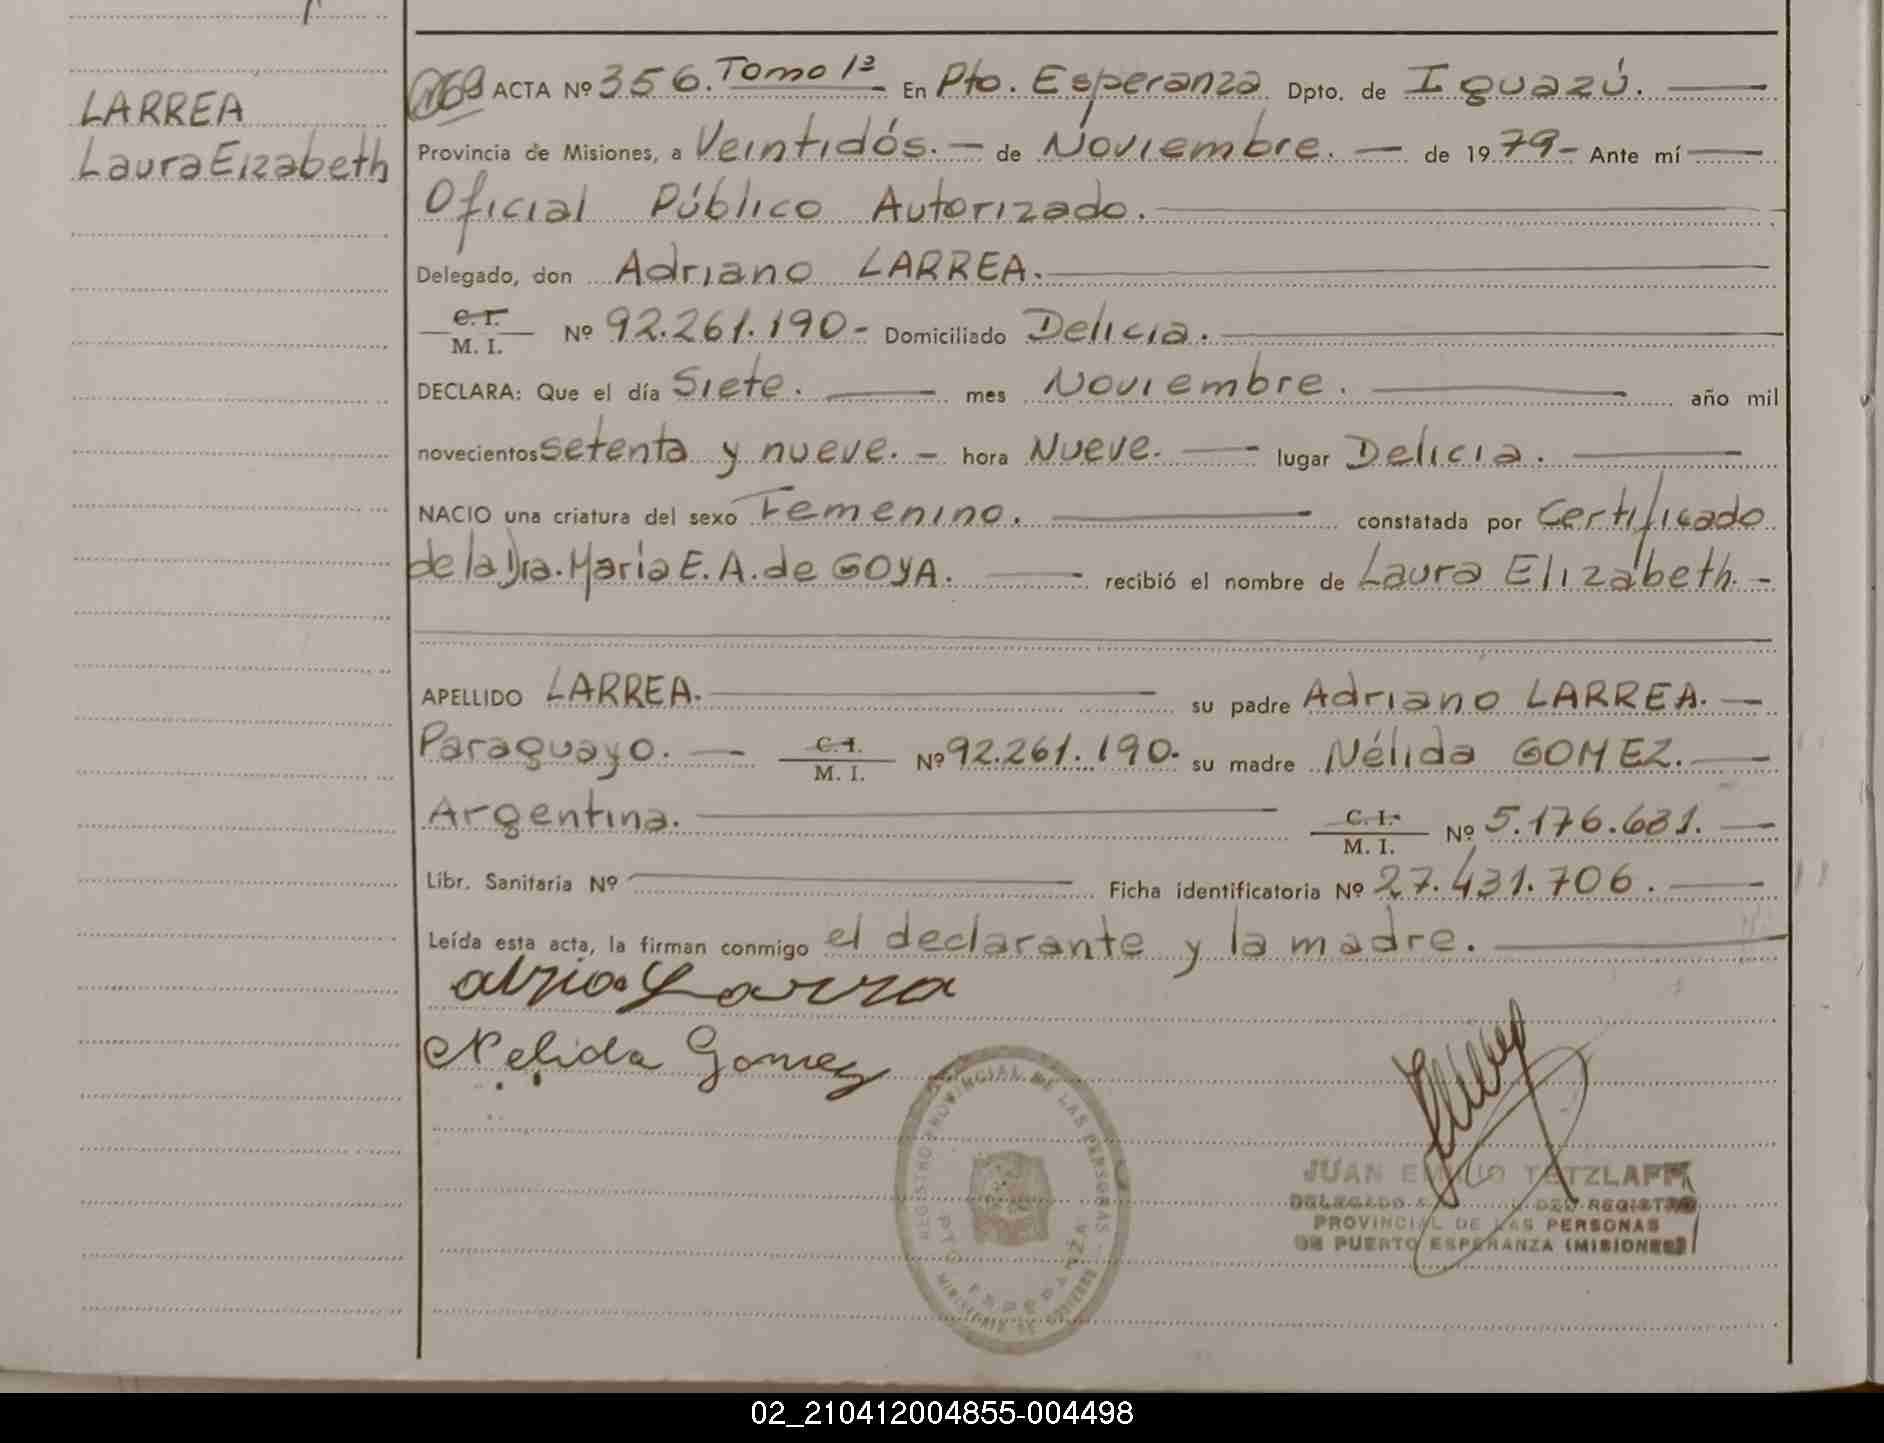 LARREA
Laura Eizabeth
ACTA Nº 356. Tomo 1º En Pto. Esperanza Dpto. de Iguazú.
Provincia de Misiones, a Veintidós. de Noviembre. de 1979 - Ante mí
Oficial Público Autorizado.
Delegado, don Adriano LARREA.
C. I. M. I. Nº 92.261.190- Domiciliado Delicia.
DECLARA: Que el día Siete. mes Noviembre. año mil
novecientos setenta y nueve. - hora Nueve. lugar Delicia.
NACIO una criatura del sexo Femenino. constatada por Certificado
de la Dra. María E. A. de GOYA. recibió el nombre de Laura Elizabeth. -
APELLIDO LARREA. su padre Adriano LARREA.
Paraguayo. C. I. M. I. Nº 92.261.190- su madre Nélida GOMEZ.
Argentina. C. I. M. I. Nº 5.176.631.
Libr. Sanitaria Nº Ficha identificatoria Nº 27.431.706.
Leída esta acta, la firman conmigo el declarante y la madre.
Nelida Gomez
REGISTRO PROVINCIAL DE LAS PERSONAS
PTO. ESPERANZA
MINISTERIO DE GOBIERNO
JUAN EMILIO TETZLAFF
DELEGADO DEL REGISTRO
PROVINCIAL DE LAS PERSONAS
DE PUERTO ESPERANZA (MISIONES)
02_210412004855-004498